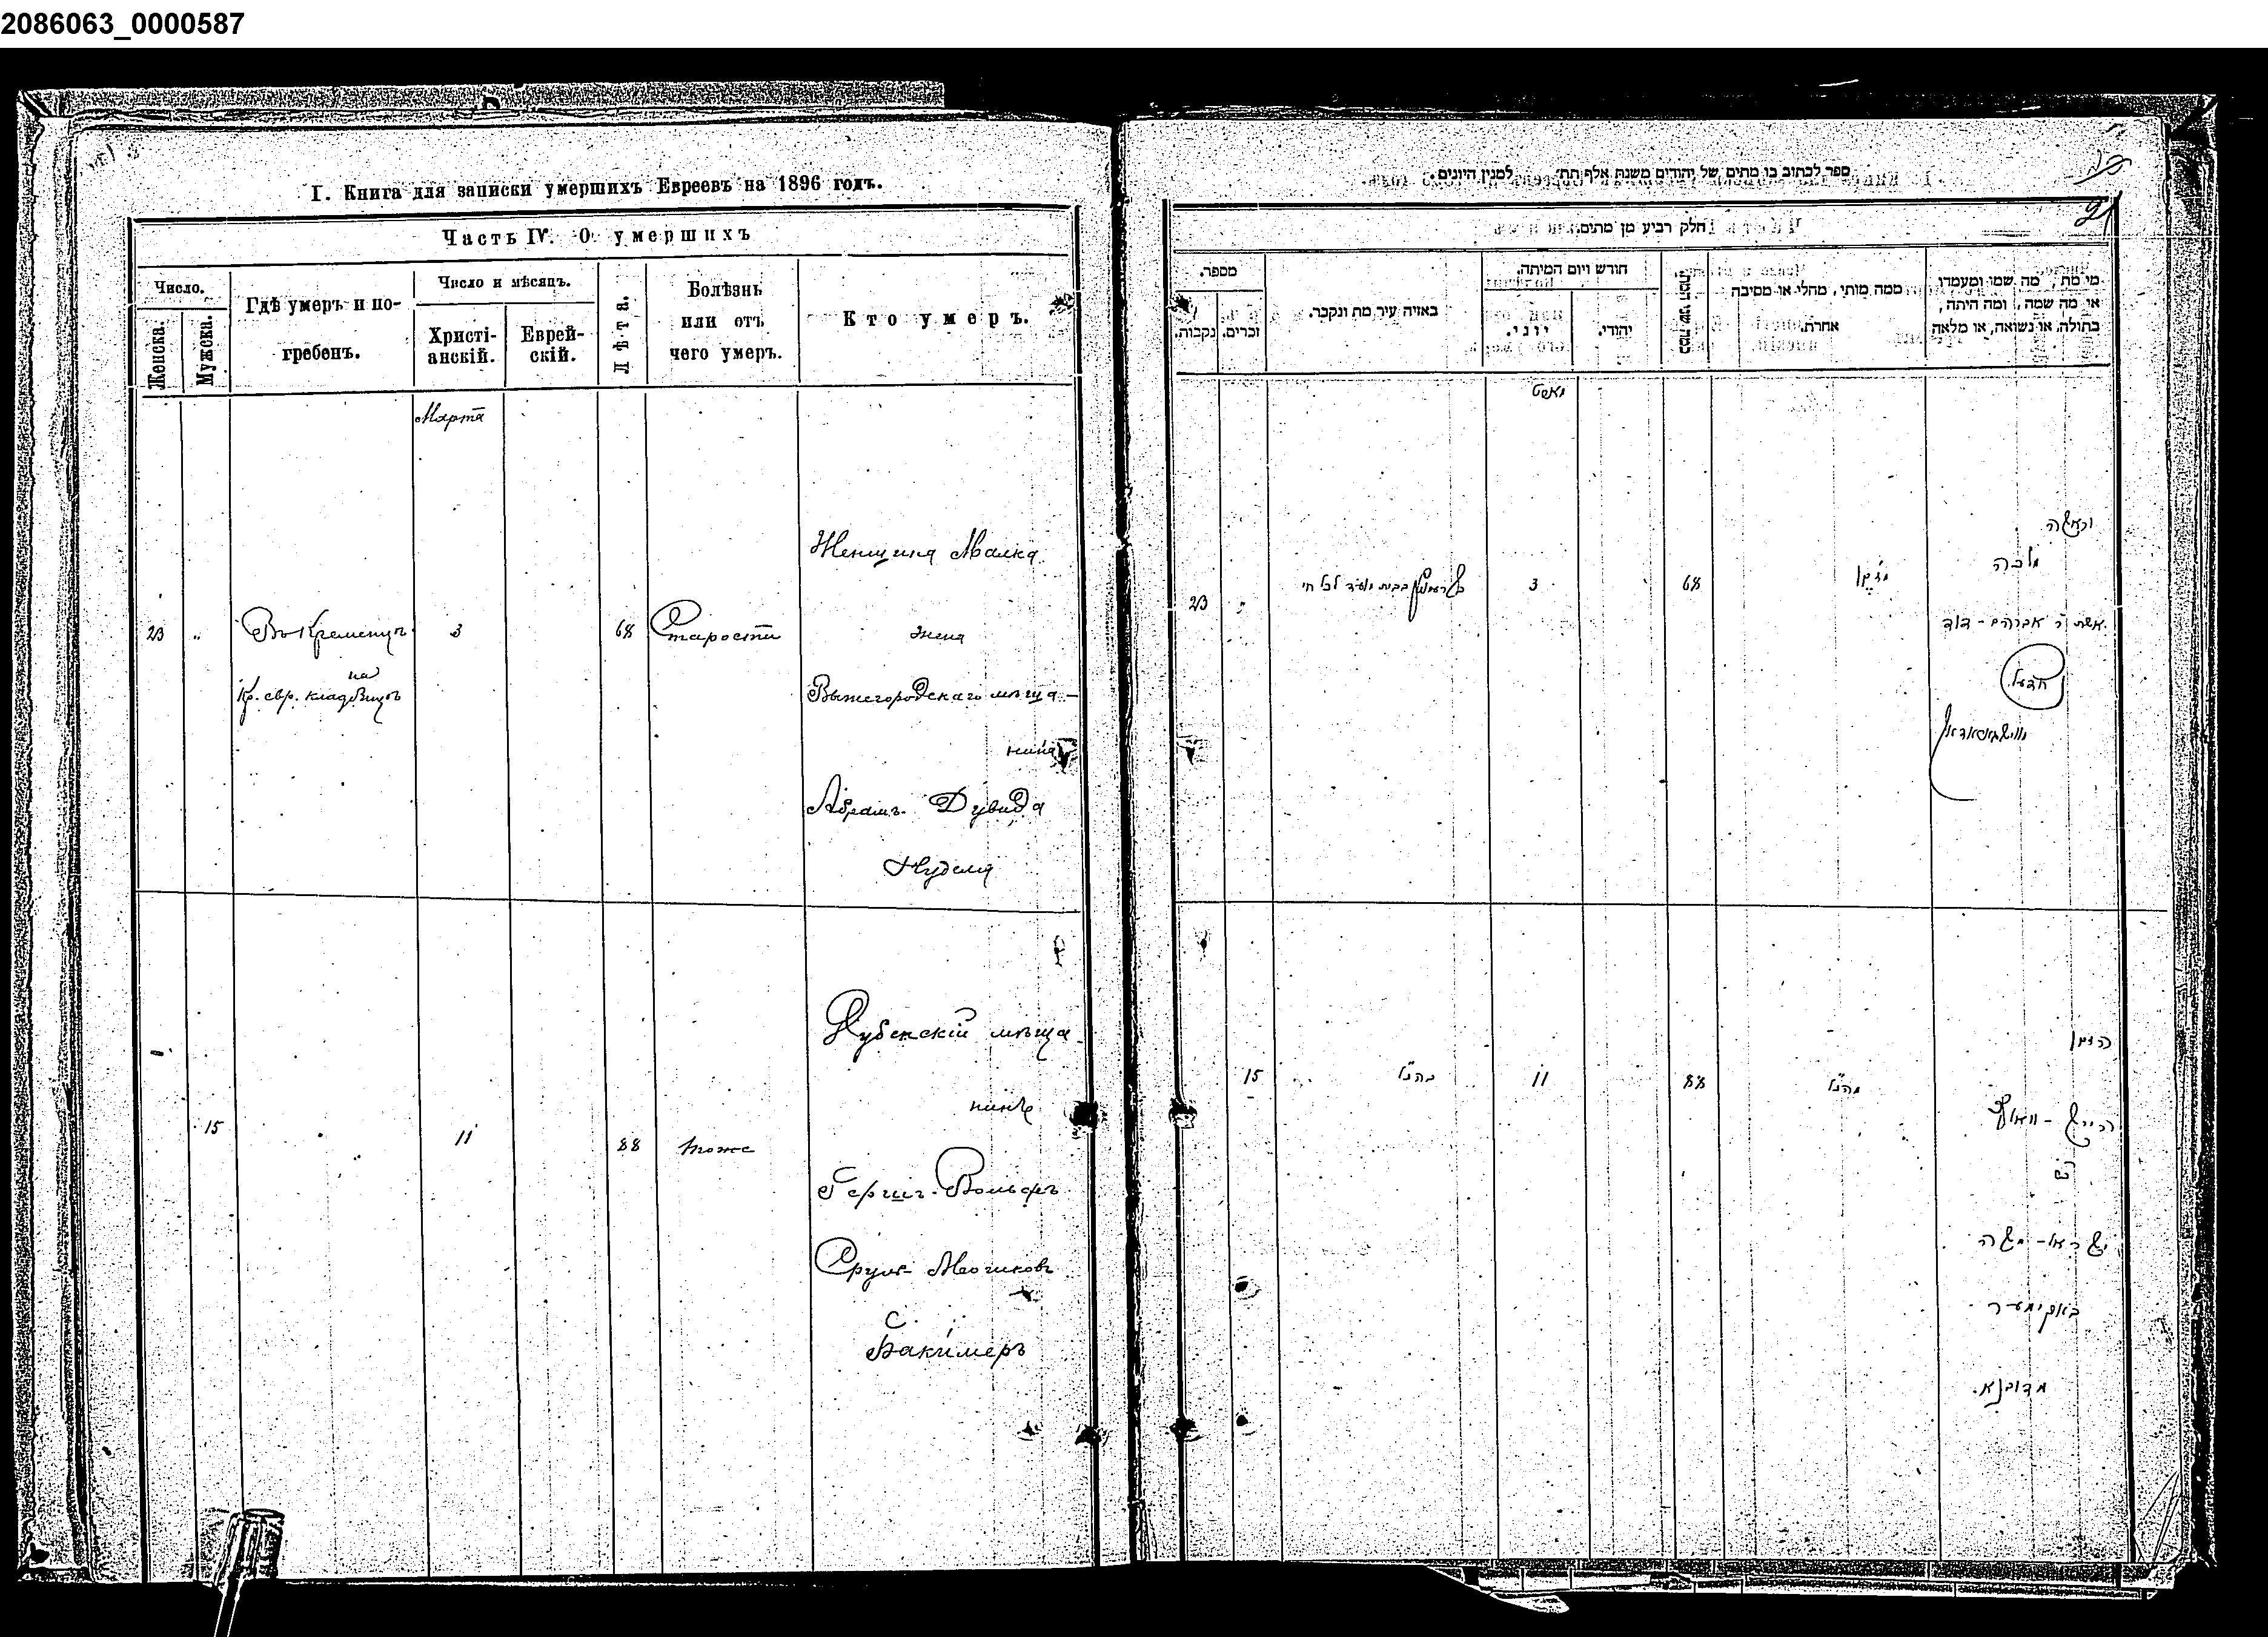 2086063_0000587
I. Книга для записки умершихъ Евреевъ на 1896 годъ.
Часть IV. О умершихъ
Число.
Женска.
Мужска.
Гдѣ умеръ и по-
гребенъ.
Число и мѣсяцъ.
Христі-
анскій.
Еврей-
скій.
Лѣта.
Болѣзнь
или отъ
чего умеръ.
Кто умеръ.
Марта
23
Въ Кременцѣ
на
Кр. евр. кладбищѣ
3
68
Старости
Женщина Малка
жена
Вышегородскаго мѣща-
нина
Абрамъ Дувида
Нуделя
15
11
88
тоже
Дубенскій мѣща
нинъ
Гершъ-Вольфъ
Сруль-Мошковъ
Бакимеръ
ספר לכתוב בו מתים של יהודים משנת אלף תת׳ למנין היונים.
21
חלק רביע מן מתים
מספר.
נקבות.
זכרים.
באיזה עיר מת ונקבר.
חורש ויום המיתה.
יוני.
יהודי.
ממה מותי, מחלי או מסיבה
אחרת.
מי מת, מה שמו ומעמדו
או מה שמה, ומה היתה,
בתולה, או נשואה, או מלאה
מארט
23
בבית מועד לכל חי
3
68
מזקן
מלכה
אשת ר אברהם - דוד
15
כהנ״ל
11
88
מהנ״ל
הזקן
הירש - וואלף
ישראל - משה
באקימער
מדובנא.